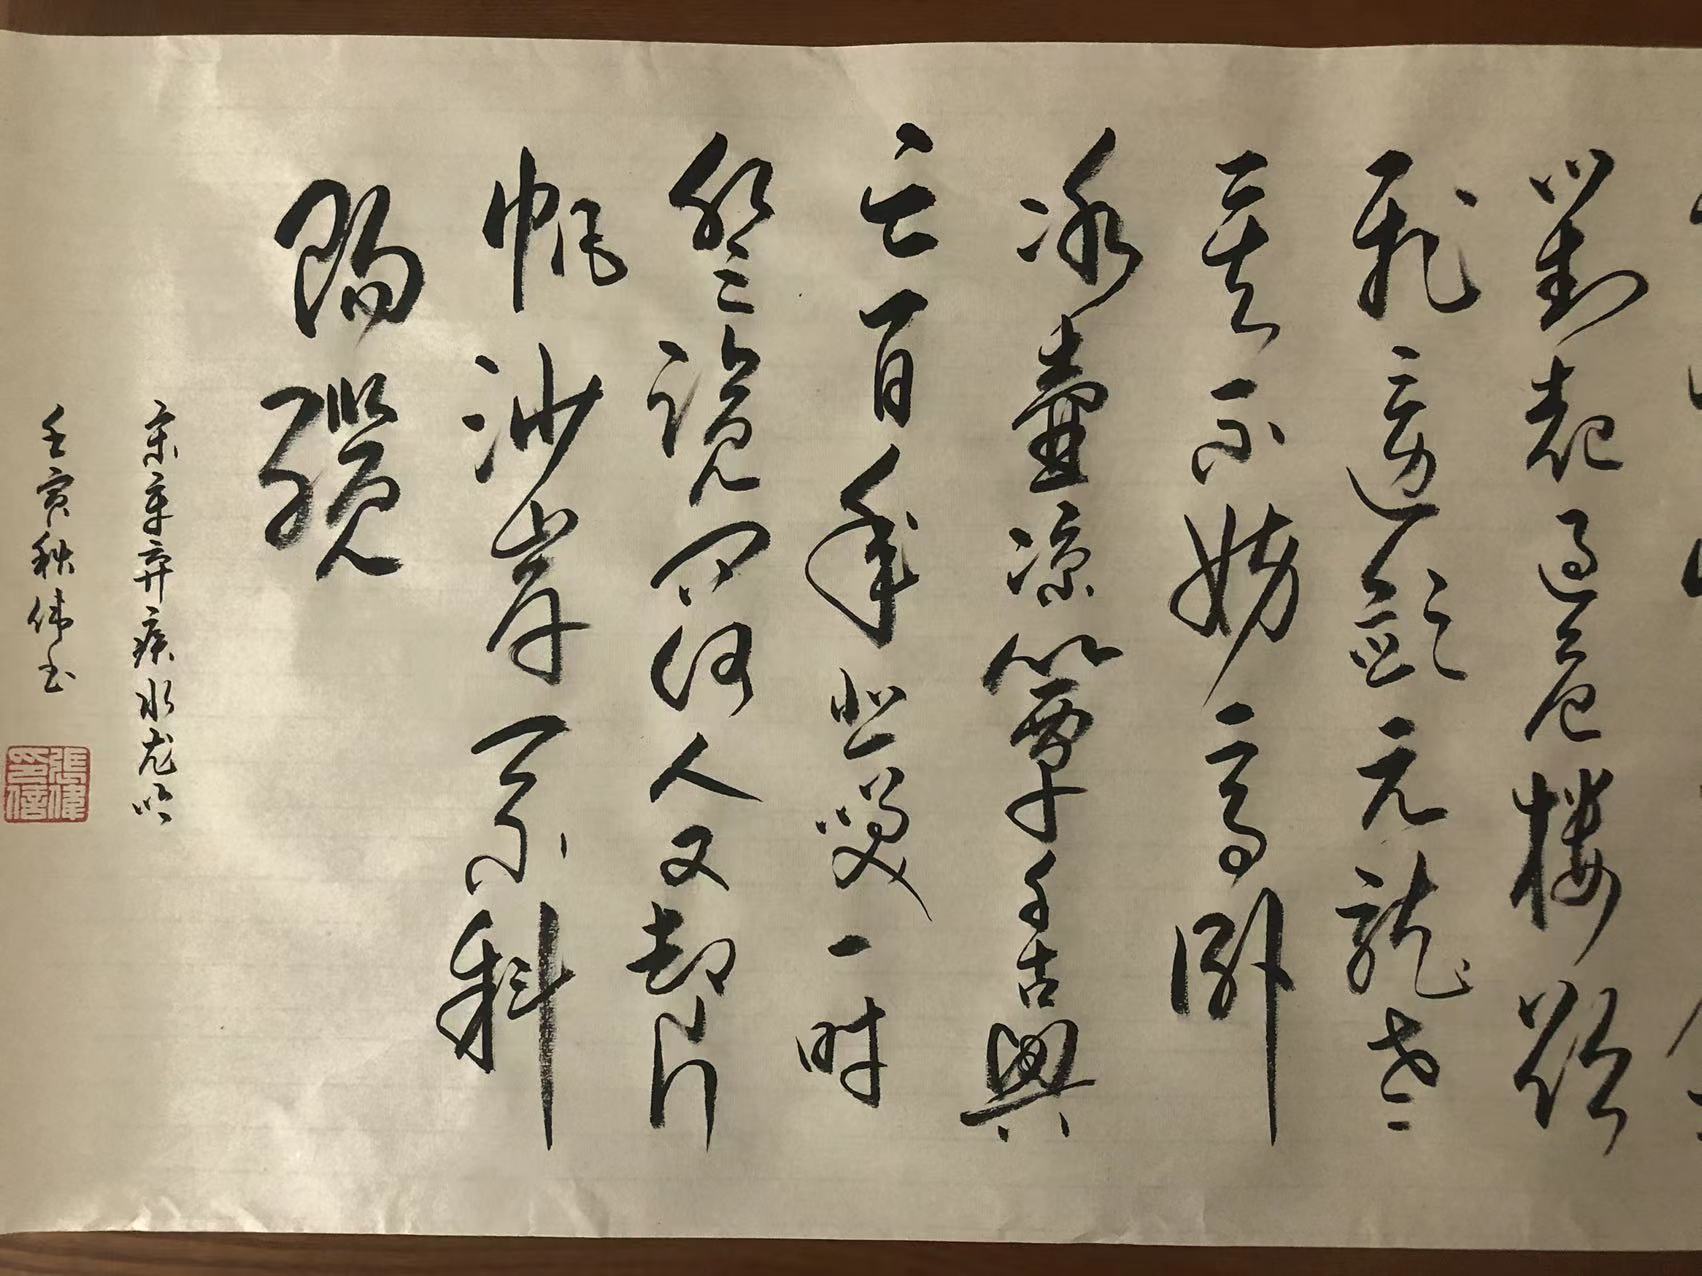 對起過危樓欲
飛還斂元龍老
矣不妨高臥
冰壺涼簟千古興
亡百年悲笑一時
登覽問何人又卸片
帆沙岸系斜
陽纜
宋辛弃疾水龙吟
壬寅秋伟书
張偉印信